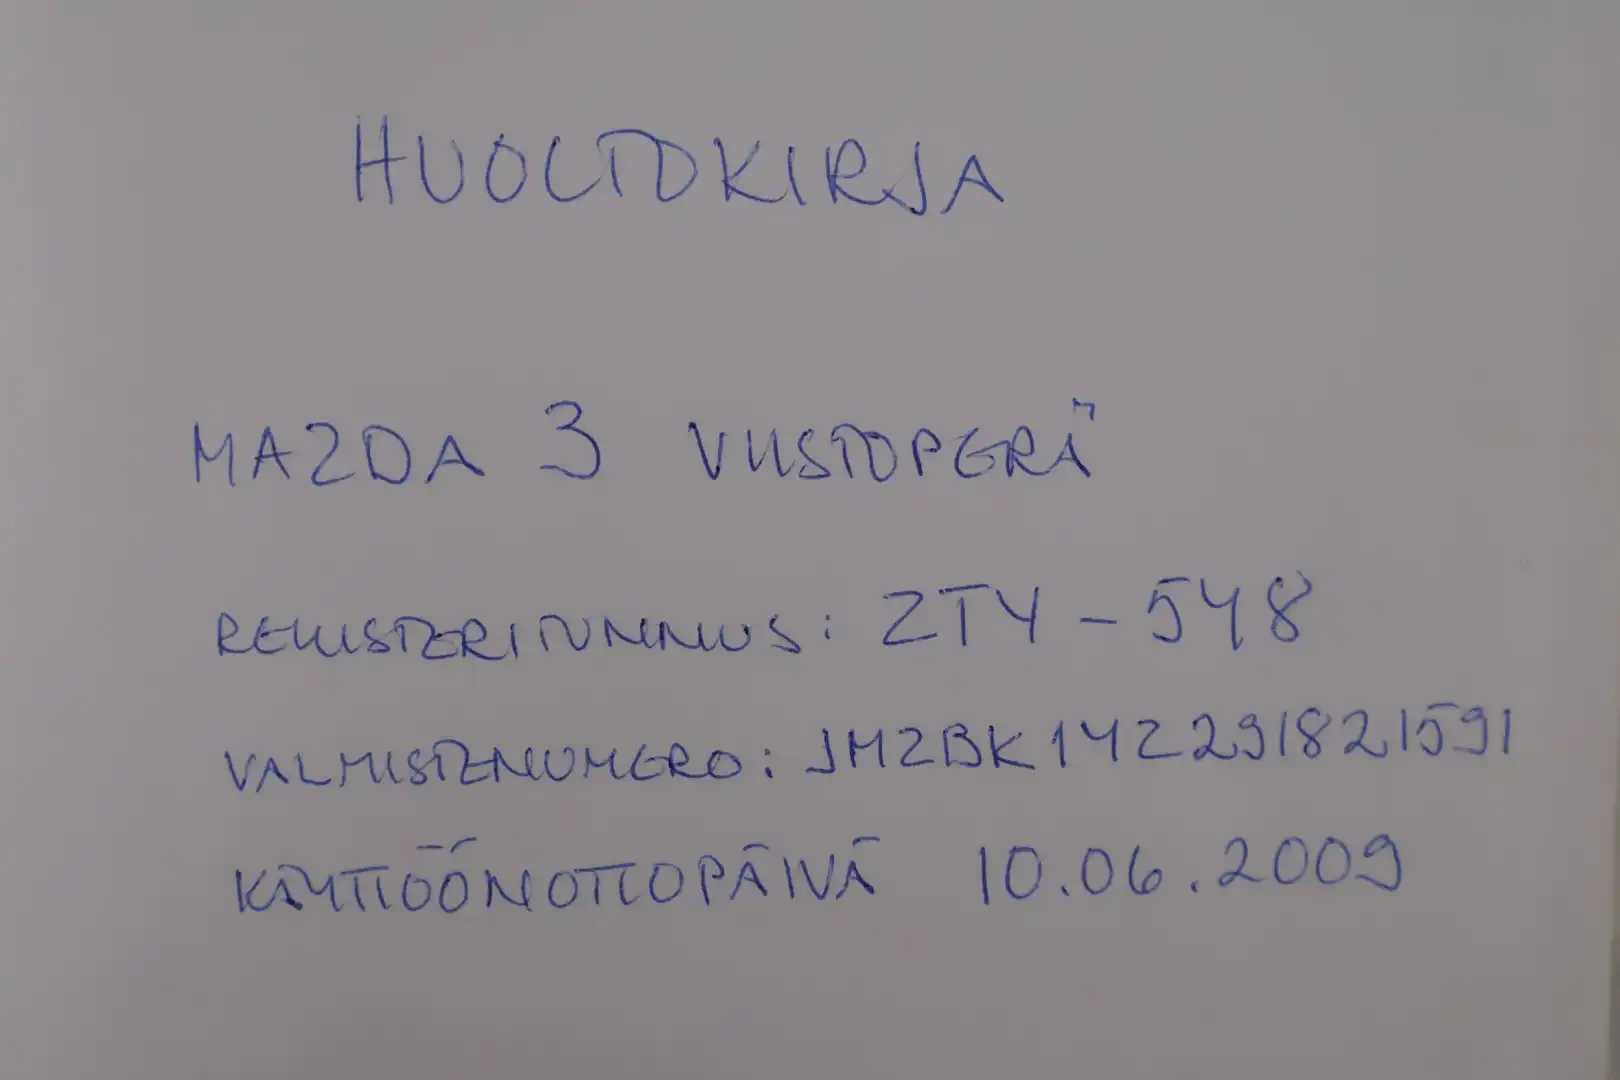 HUOLTOKIRJA
MAZDA 3 VIISTOPERÄ
REKISTERITUNNUS: ZTY-548
VALMISTENUMERO: JMZBK14Z291821591
KÄYTTÖÖNOTTOPÄIVÄ 10.06.2009